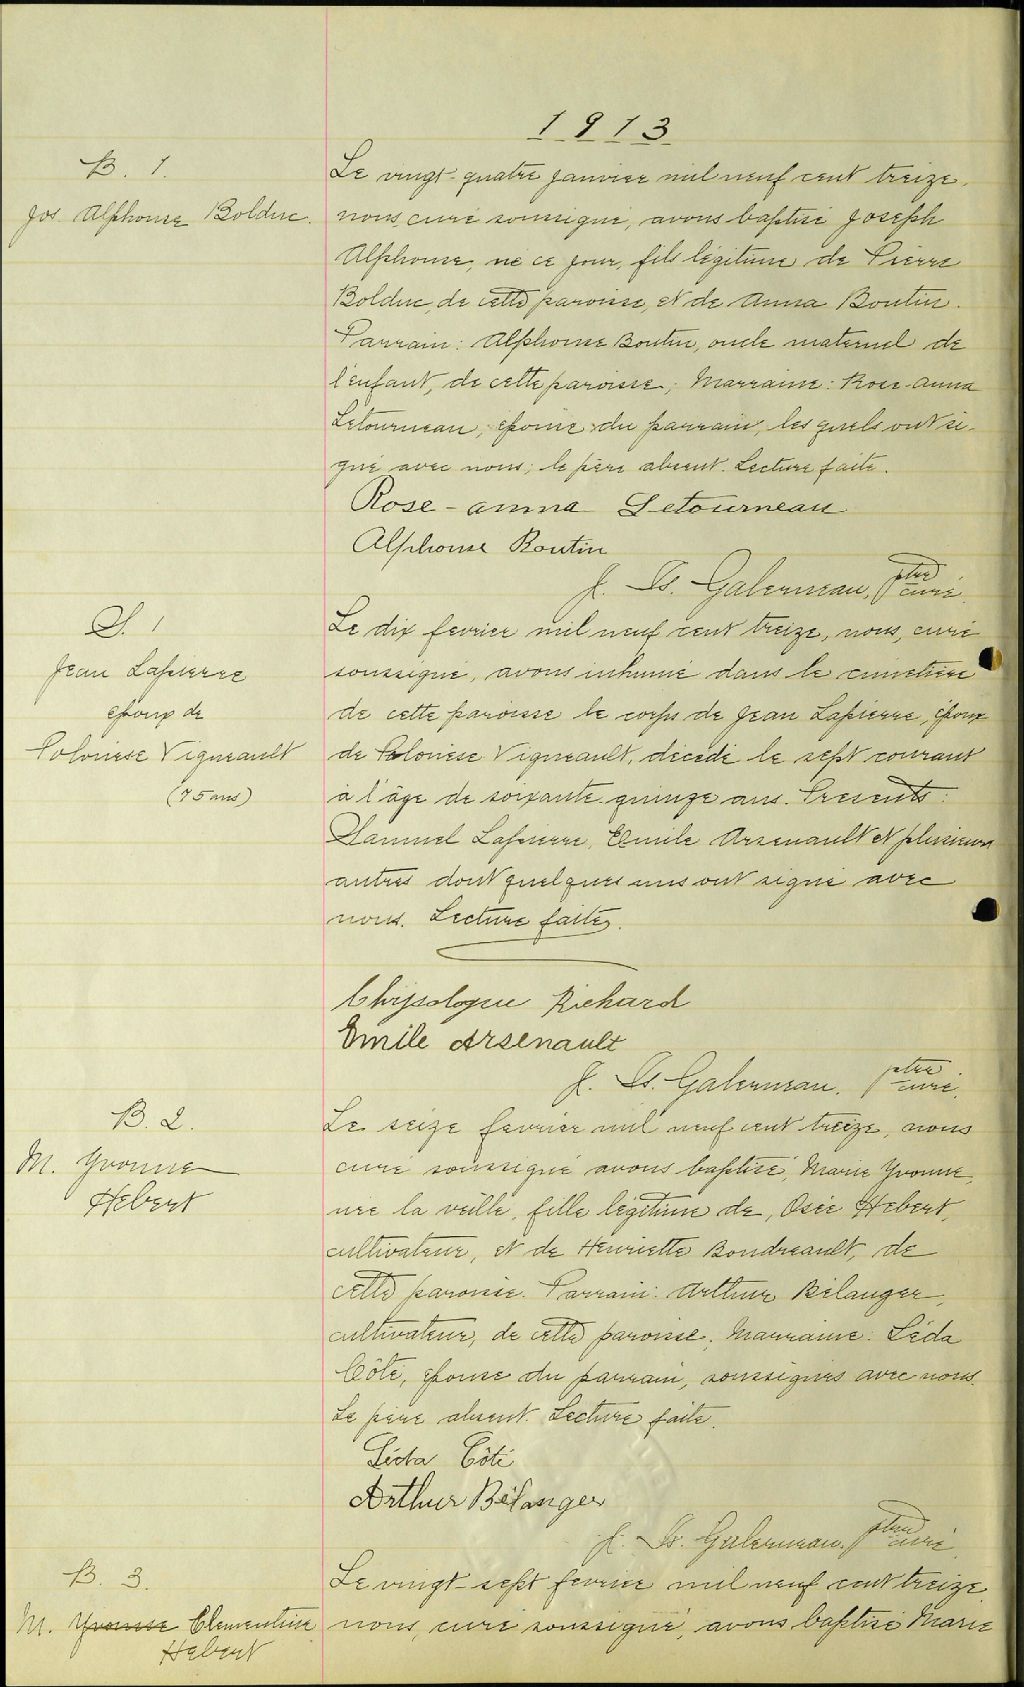 1913
B. 1.
Jos Alphonse Bolduc.
Le vingt-quatre janvier mil neuf cent treize,
nous, curé soussigné, avons baptisé Joseph
Alphonse, né ce jour, fils légitime de Pierre
Bolduc, de cette paroisse, et de Anna Boutin.
Parrain: Alphonse Boutin, oncle maternel de
l'enfant, de cette paroisse; Marraine: Rose-Anna
Letourneau, épouse du parrain, les quels ont si-
gné avec nous; le père absent. Lecture faite.
Rose-anna Letourneau
Alphonse Boutin
J. Ls. Galerneau, ptre curé.
S. 1
Jean Lapierre
époux de
Polonèse Vigneault
(75 ans)
Le dix fevrier mil neuf cent treize, nous, curé
soussigné, avons inhumé dans le cimetière
de cette paroisse le corps de Jean Lapierre, époux
de Polonèse Vigneault, décédé le sept courant
à l'âge de soixante quinze ans. Presents:
Samuel Lapierre, Emile Arsenault et plusieurs
autres dont quelques uns ont signé avec
nous. Lecture faite.
Chrysologue Richard
Emile Arsenault
J. Ls. Galerneau, ptre curé.
B. 2.
M. Yvonne
Hebert
Le seize fevrier mil neuf cent treize, nous
curé soussigné avons baptisé, Marie Yvonne,
née la veille, fille légitime de, Osée Hebert,
cultivateur, et de Henriette Boudreault, de
cette paroisse. Parrain: Arthur Bélanger,
cultivateur, de cette paroisse; Marraine: Léda
Côté, épouse du parrain, soussignés avec nous.
Le père absent. Lecture faite.
Léda Côté
Arthur Bélanger
J. Ls. Galerneau, ptre curé.
B. 3.
M. Yvonne Clementine
Hebert
Le vingt-sept fevrier mil neuf cent treize
nous, curé soussigné, avons baptisé Marie